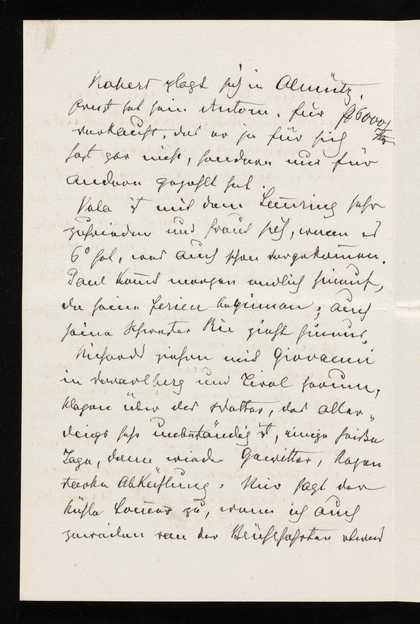 Robert plagt sich in Olmütz.
Ernst hat sein Autom. für fl 6000
verkauft, das er ja für sich
fast gar nicht, sondern nur für
andere gezahlt hat.
ist mit dem sehr
zufrieden und freut sich, wenn es
6° hat, was auch schon vorgekommen.
Paul kommt morgen endlich hinauf,
da seine Ferien beginnen, auch
seine Schwester zieht hinaus.
Richard ziehen mit Giovanni
in Vorarlberg und Tirol herum,
klagen über das Wetter, das aller-
dings sehr unbeständig ist, einige heiße
Tage, dann wieder Gewitter, Regen
starke Abkühlung. Mir sagt der
kühle Sommer zu, wenn ich auch
zuweilen von der abends